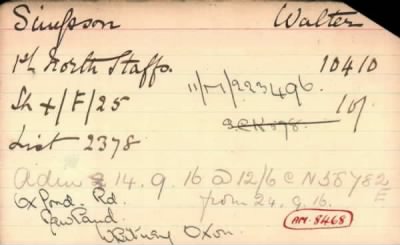 Simpson Walter
1st North Staffs. 10410
11/M/223496.
Sh X/F/25 10/
List 2378
Adm 14.9.16 @ 12/6 c N 58782/E
from 24.9.16.
Oxford. Rd.
Newland
Witney Oxon.
AM-8468